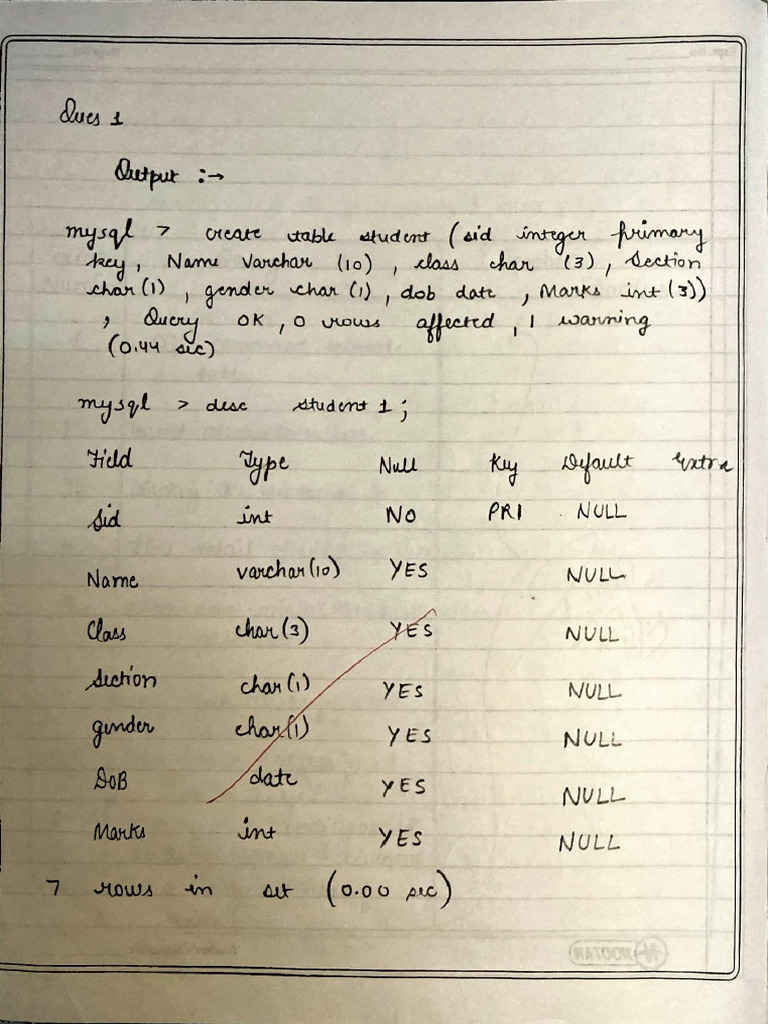 Ques 1
Output :→
mysql > create table student (sid integer primary
key, Name Varchar (10), class char (3), Section
char(1), gender char (1), dob date, Marks int(3))
, Query OK, 0 rows affected, 1 warning
(0.44 sec)
mysql > desc student 1;
Field Type Null Key Default Extra
Sid int NO PRI NULL
Name varchar(10) YES NULL
Class char(3) YES NULL
Section char(1) YES NULL
gender char(1) YES NULL
DOB date YES NULL
Marks int YES NULL
7 rows in set (0.00 sec)